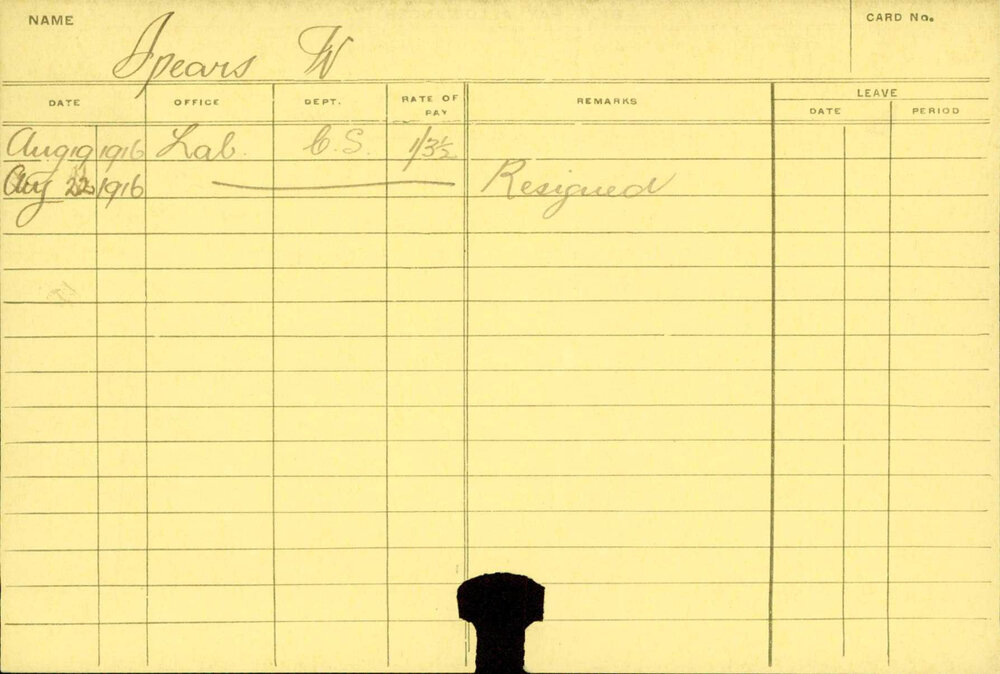 NAME
CARD No.
Spears W
DATE OFFICE DEPT. RATE OF PAY REMARKS LEAVE
DATE PERIOD
Aug 19 1916 Lab. C.S. 1/3½
Aug 22 1916 Resigned